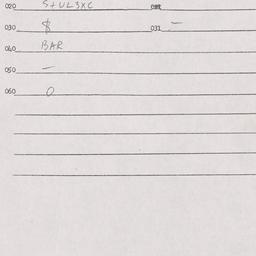 020 S+UL3XC
030 $ 031 –
040 BAR
050 –
060 0